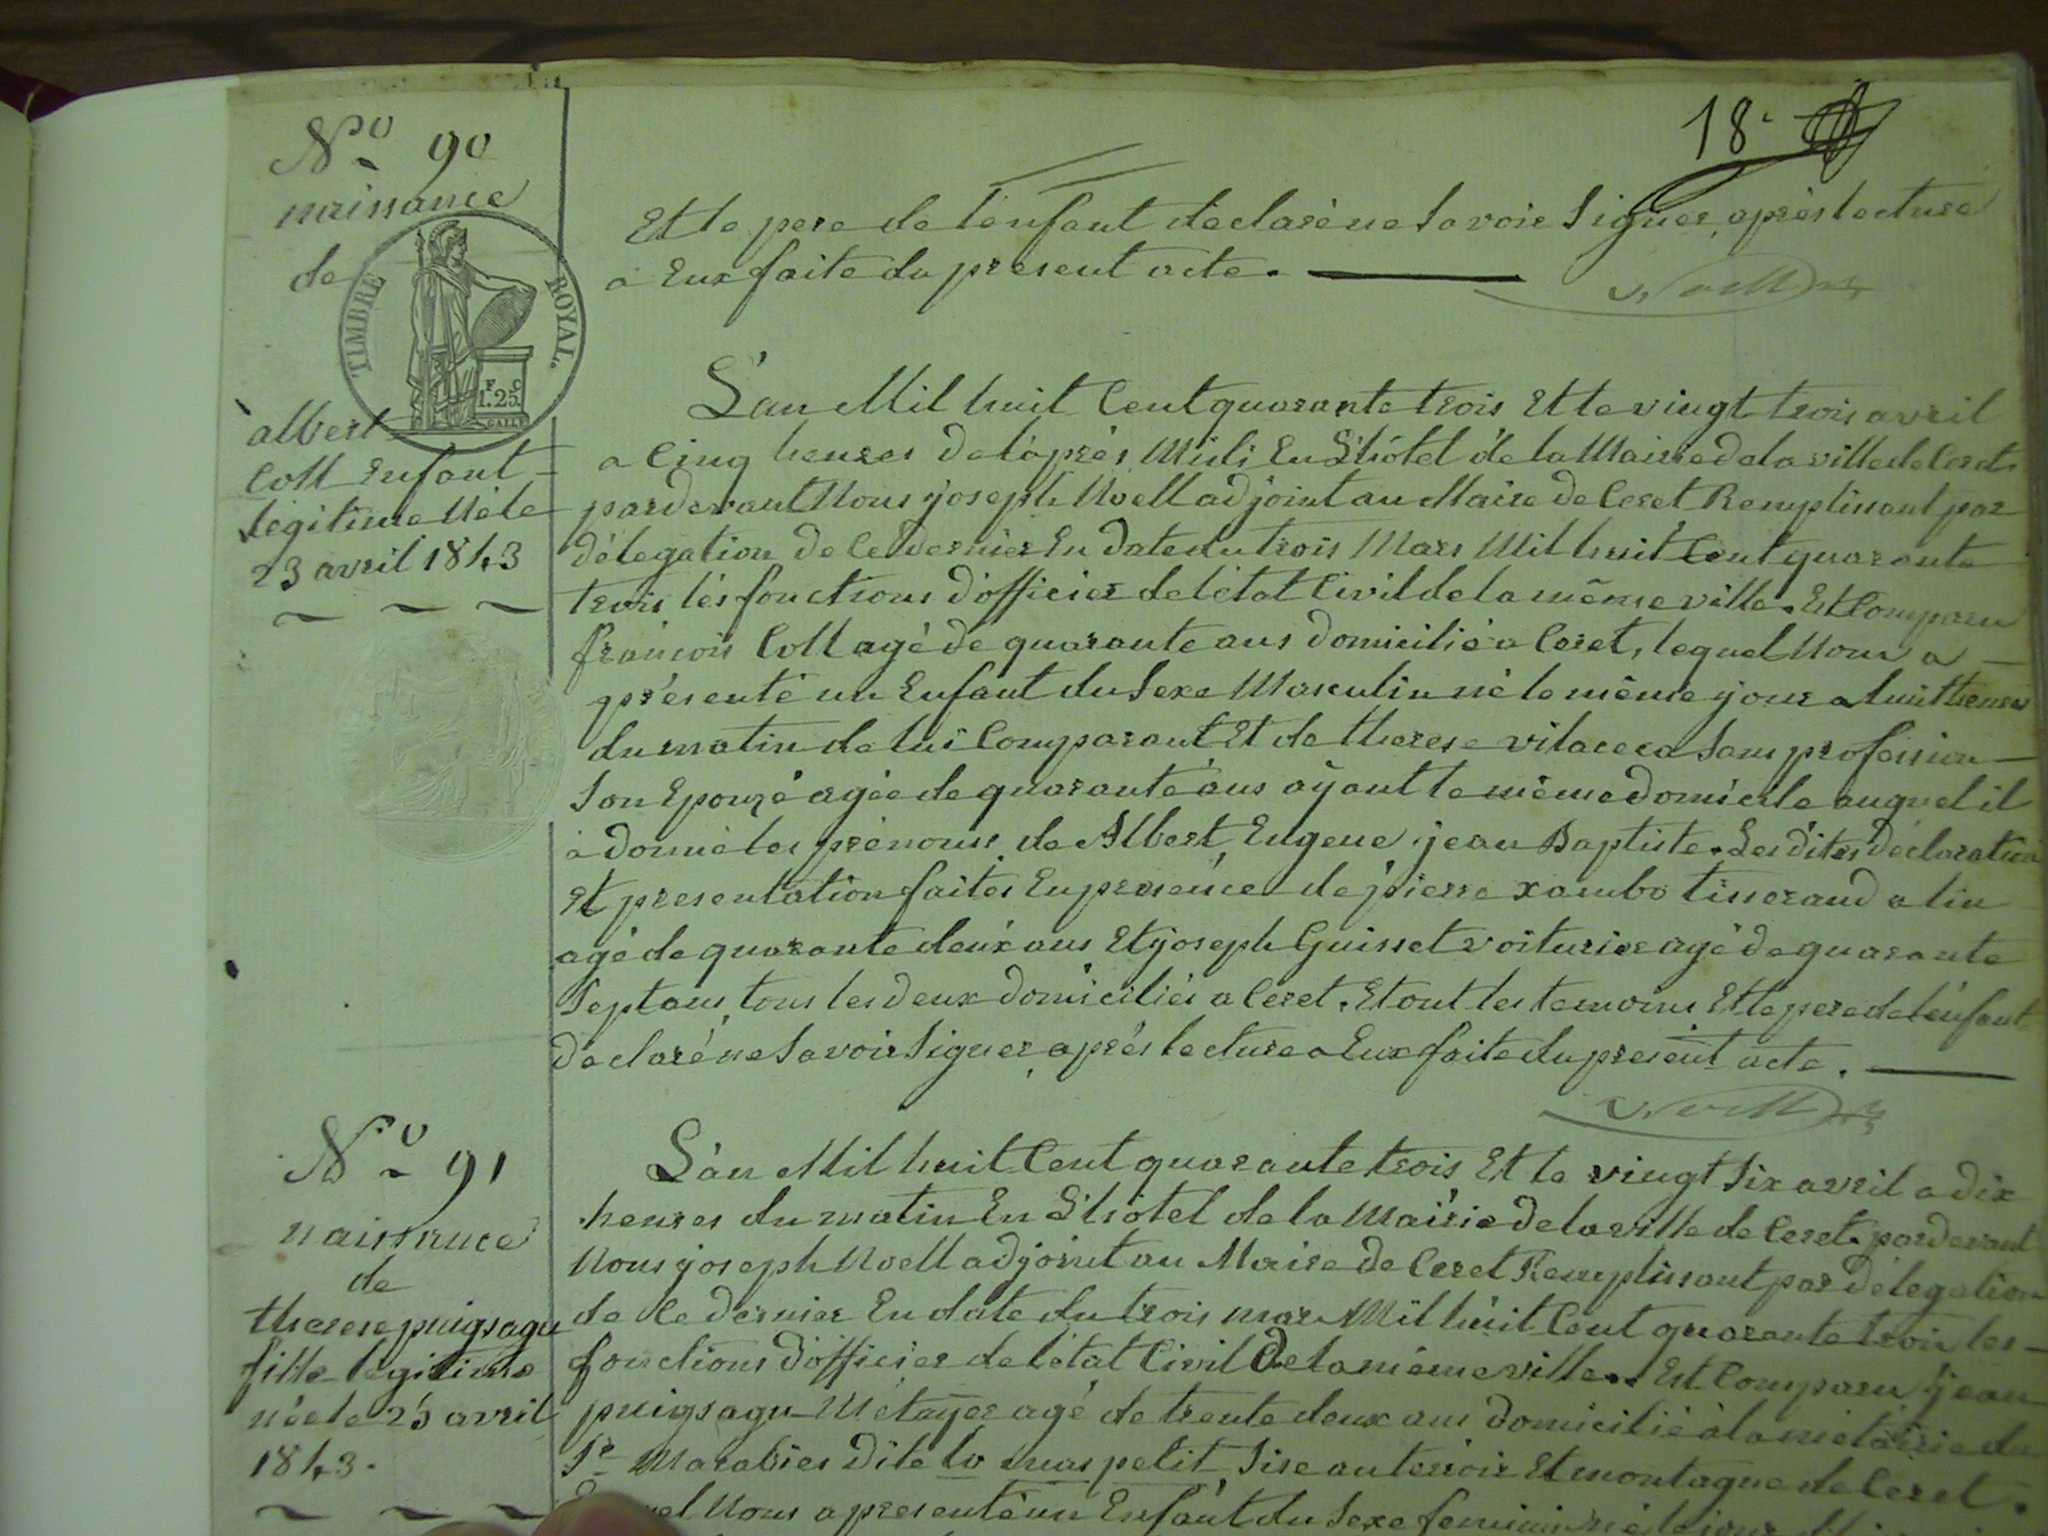 18.
Nº 90
naissance
de
TIMBRE ROYAL.
F C
1.25.
albert
Coll Enfant
légitime Né le
23 avril 1843
Et le pere de l'enfant déclaré ne Savoir Signer, après lecture
a Eux faite du present acte.
Noell
L'an Mil huit Cent quarante trois Et le vingt trois avril
a Cinq heures de l'après Midi En L'hôtel de la Mairie de la ville de Ceret
pardevant Nous joseph Noell adjoint au Maire de Ceret Remplissant par
délegation de Ce dernier En date du trois Mars Mil huit Cent quarante
trois les fonctions d'officier de l'état Civil de la même ville. Est Comparu
françois Coll agé de quarante ans domicilié a Ceret, lequel Nous a
présenté un Enfant du Sexe Masculin né le même jour a huit heures
du matin de lui Comparant Et de therese vilaceca Sans profession
Son Epouze agée de quarante ans ayant le même domicile auquel il
a donné les prénoms de Albert, Eugene, jean Baptiste. Les dites déclaration
Et presentation faites En presence de pierre xambo tisserand a lin
agé de quarante deux ans Et joseph Guisset voiturier agé de quarante
Sept ans, tous les deux domiciliés a Ceret. Et ont les temoins Et le pere de l'enfant
déclaré ne Savoir Signer, après lecture a Eux faite du present acte.
Noell
Nº 91
naissance
de
therese puigsagu
fille legitime
née le 25 avril
1843.
L'an Mil huit Cent quarante trois Et le vingt Six avril a dix
heures du matin En L'hotel de la Mairie de la ville de Ceret. pardevant
Nous joseph Noell adjoint au Maire de Ceret Remplissant par délegation
de Ce dernier En date du trois mars Mil huit Cent quarante trois les
fonctions d'officier de l'état Civil de la même ville.. Est Comparu jean
puigsagu Métayer agé de trente deux ans domicilié à la métairie du
Sr Marabies dite lo mas petit, Sise au terroir Et montagne de Ceret.
Nous a presenté un Enfant du Sexe feminin né